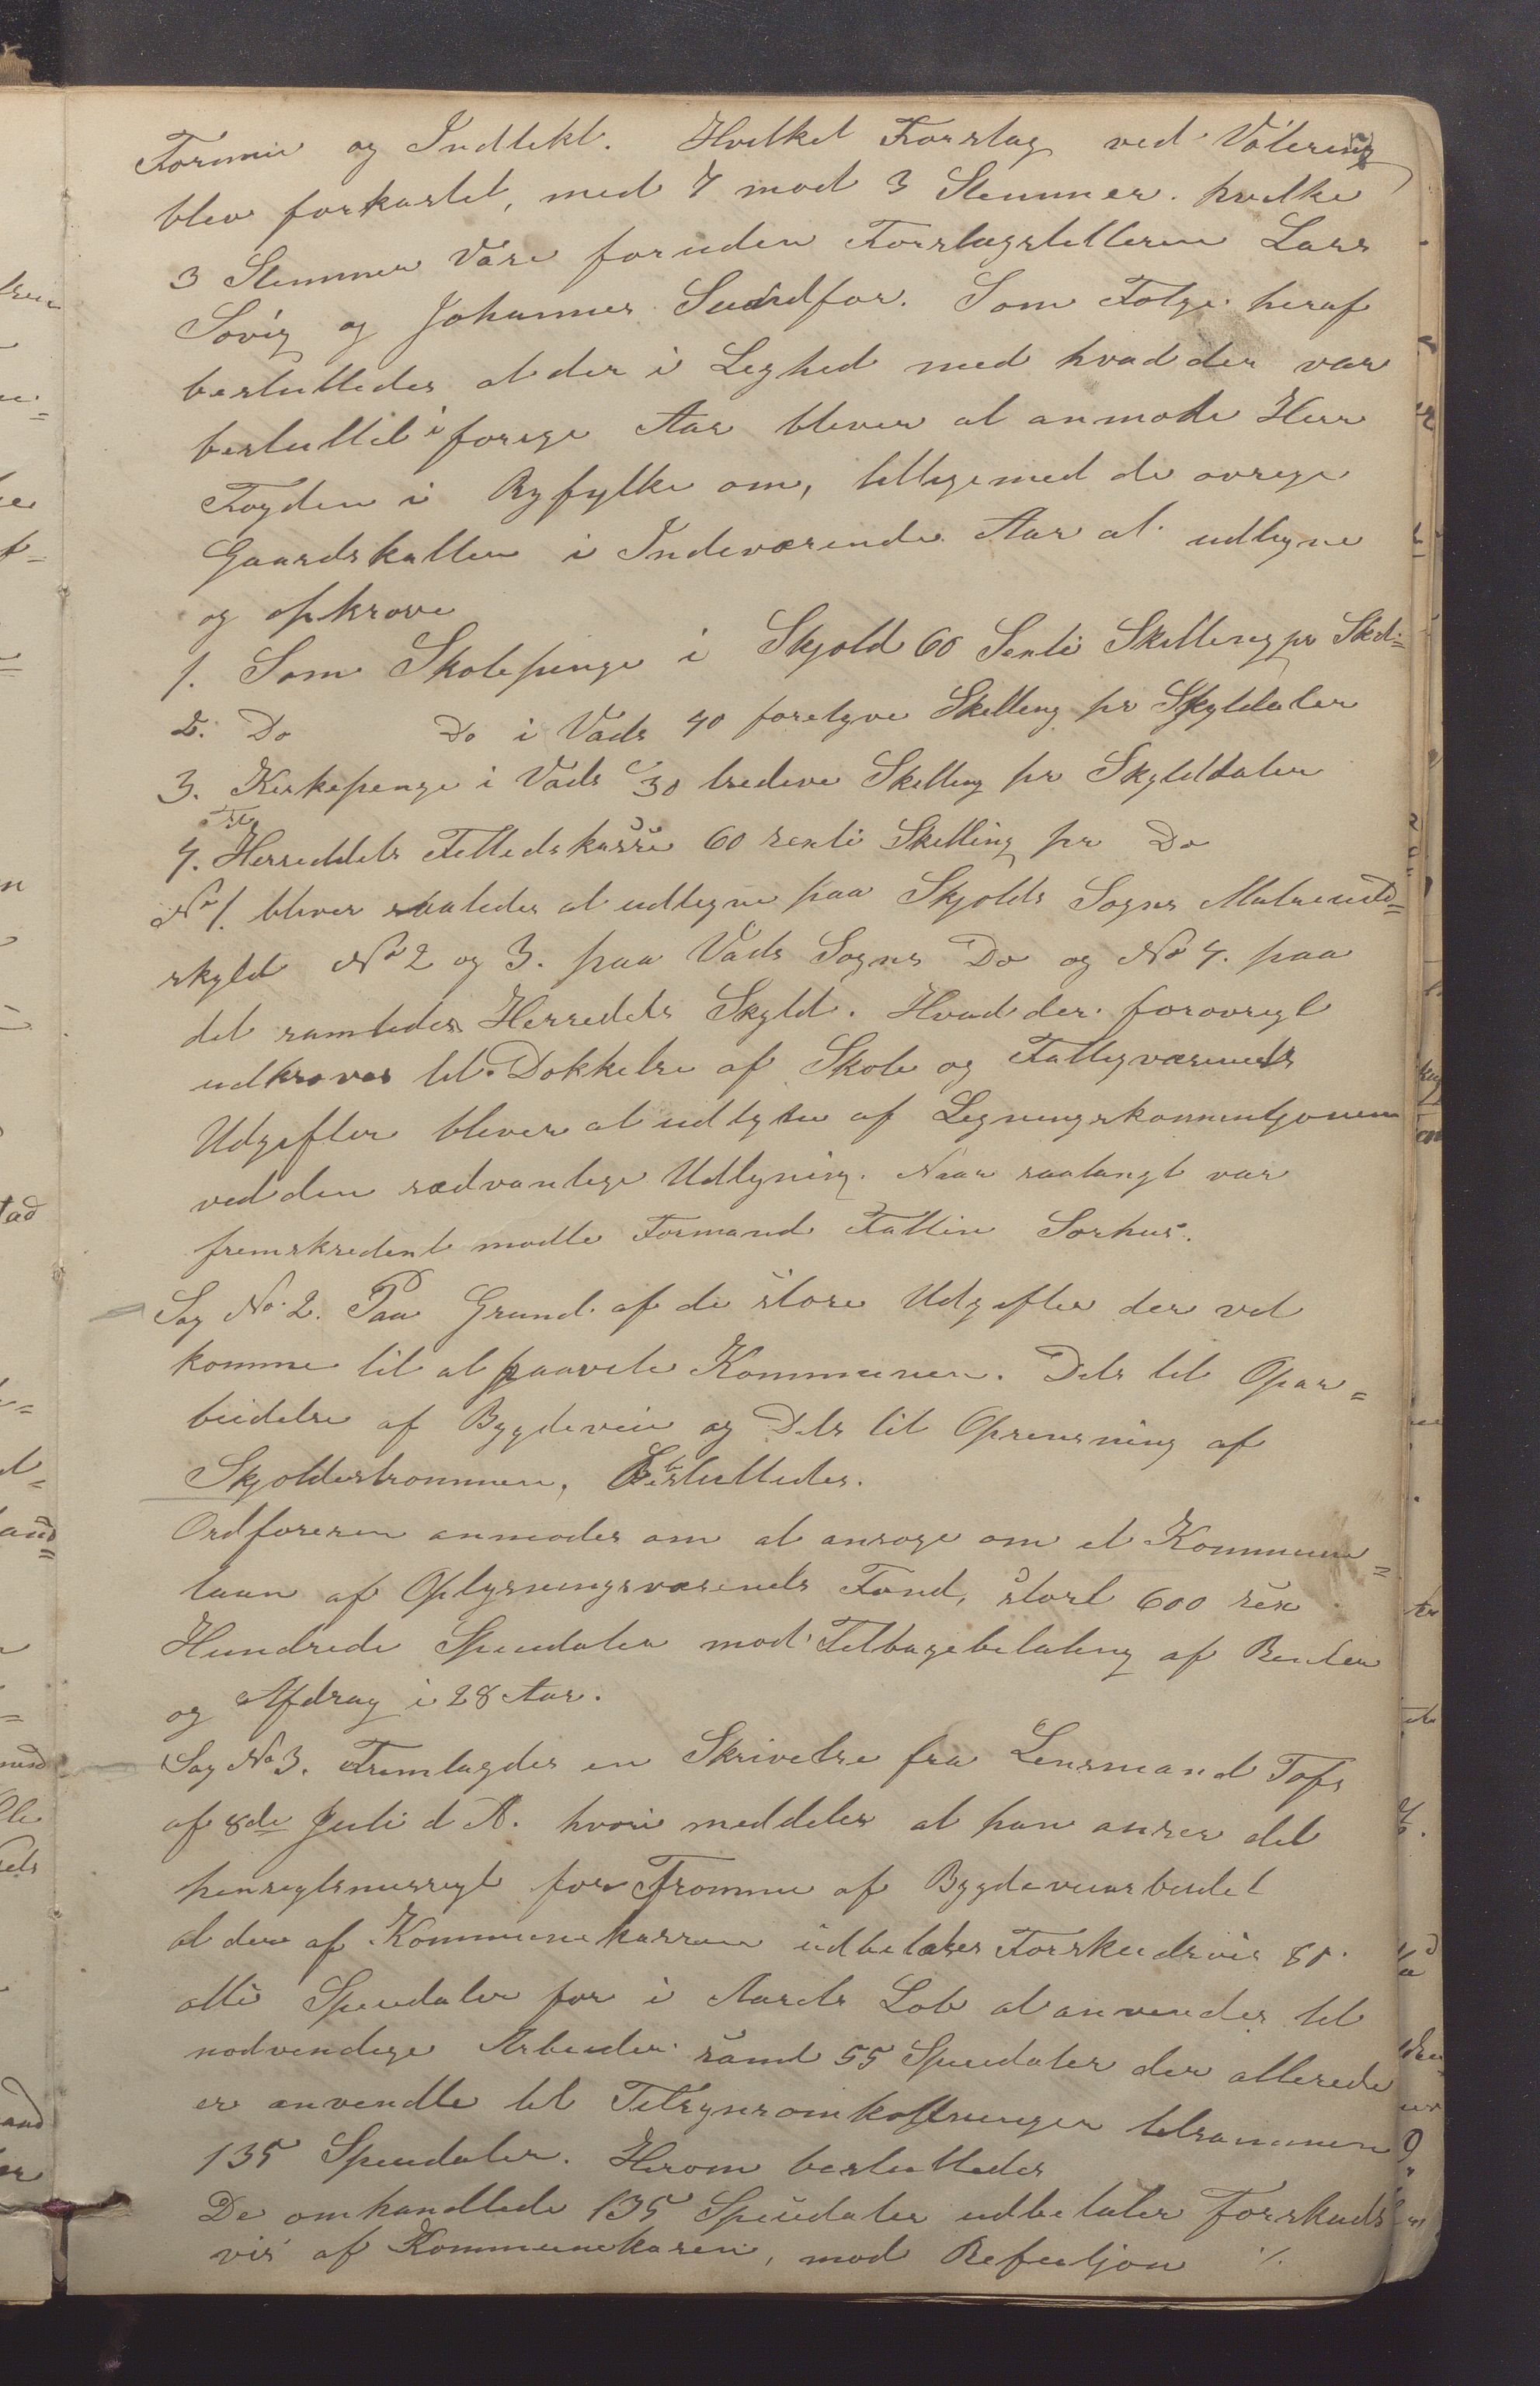 Formue og Indtekt. Hvilket Forslag ved Votering
blev forkastet, med 7 mod 3 Stemmer. hvilke
3 Stemmer Vare foruden Forslagstilleren Lars
Sovig og Johannes Sundfor. Som Folge heraf
besluttedes at der i Lighed med hvad der var
besluttet i forege Aar bliver at anmode Herr
Fogden i Ryfylke om, tilligemed de ovrege
Gaardskatter i Indeværende Aar at udligne
og opkrove
1. Som Skolepenge i Skjold 60 Sexti Skilling pr Skd:
2. Do Do i Vads 40 foretyve Skilling pr Skylddaler
3. Kirkepenge i Vads 30 tredeve Skilling pr Skylddaler
4. Til Herreddets Felledskasse 60 sexti Skilling pr Do
No 1. bliver saaledes at udligne paa Skjolds Sogns Matreculd=
skyld No 2 og 3. paa Vads Sogns Do og No 4. paa
det samledes Herredets Skyld. Hvad der forovregt
udkroves til Dokkelse af Skole og Fattigvæsenets
Udgifter bliver at udligne af Legningskommitjonen
ved den sædvanlige Udligning. Naar saalangt var
fremskredent modte Formand Fattin Sorhus.
Sag No. 2. Paa Grund af de store Udgifter der vil
komme til at paavile Kommunen. Dels til Opar=
beidelse af Bygdeveie og Dels til Oprensning af
Skjoldestrommen, Besluttedes.
Ordforeren anmodes om at ansoge om et Kommune=
laan af Oplysningsvæsenets Fond, stort 600 sex
Hundrede Speciedaler mod Tilbagebetaling af Renter
og Afdrag i 28 Aar.
Sag No 3. Fremlagdes en Skrivelse fra Lensmand Tofs
af 8de Juli d A. hvori meddeles at han anser det
hensegtsmessegt for Fromme af Bygdeveiarbeidet
at der af Kommunekassen udbetales Forskudsvis 80
otti Speciedaler for i Aarets Lob at anvendes til
nodvendige Arbeider samt 55 Speciedaler der allerede
er anvendte til Tilsynsomkostninger tilsammen
135 Speciedaler. Herom besluttedes
De omhandlede 135 Speciedaler udbetales Forskuds
vis af Kommunekasen, mod Refusjon ./.